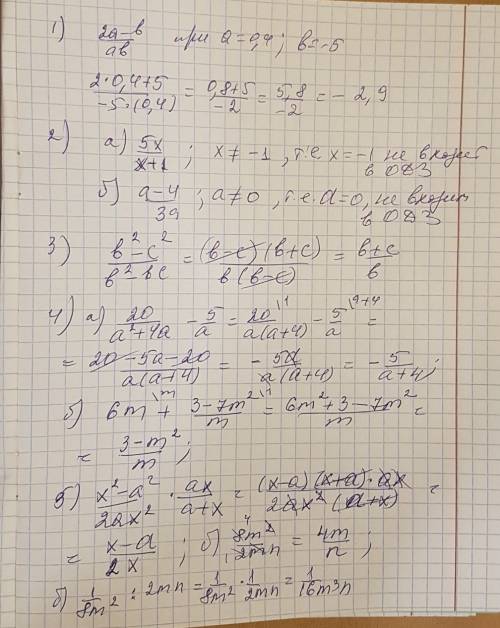 1) (2a-b)/(ab) при a=0,4; b=-5
(2·0,4+5)/(-5·(0,4)) = (0,8+5)/(-2) = 5,8/(-2) = -2,9
2) а) 5x/(x+1); x≠-1, т.е x=-1 не входит в ОДЗ
б) (a-4)/(3a); a≠0, т.е. a=0, не входит в ОДЗ
3) (b²-c²)/(b²-bc) = ((b-c)(b+c))/(b(b-c)) = (b+c)/b
4) а) 20/(a²+4a) - 5/a = 20\1/(a(a+4)) - 5\a+4/a =
= (20-5a-20)/(a(a+4)) = - 5a/(a(a+4)) = - 5/(a+4);
б) 6m\m + (3-7m²)\1/m = (6m²+3-7m²)/m =
= (3-m²)/m;
5) (x²-a²)/(2ax²) · ax/(a+x) = ((x-a)(x+a)·ax)/(2ax²(a+x)) =
= (x-a)/(2x); б) 8m²/(2mn) = 4m/n;
б) 1/(8m²) : 2mn = 1/(8m²) · 1/(2mn) = 1/(16m³n)